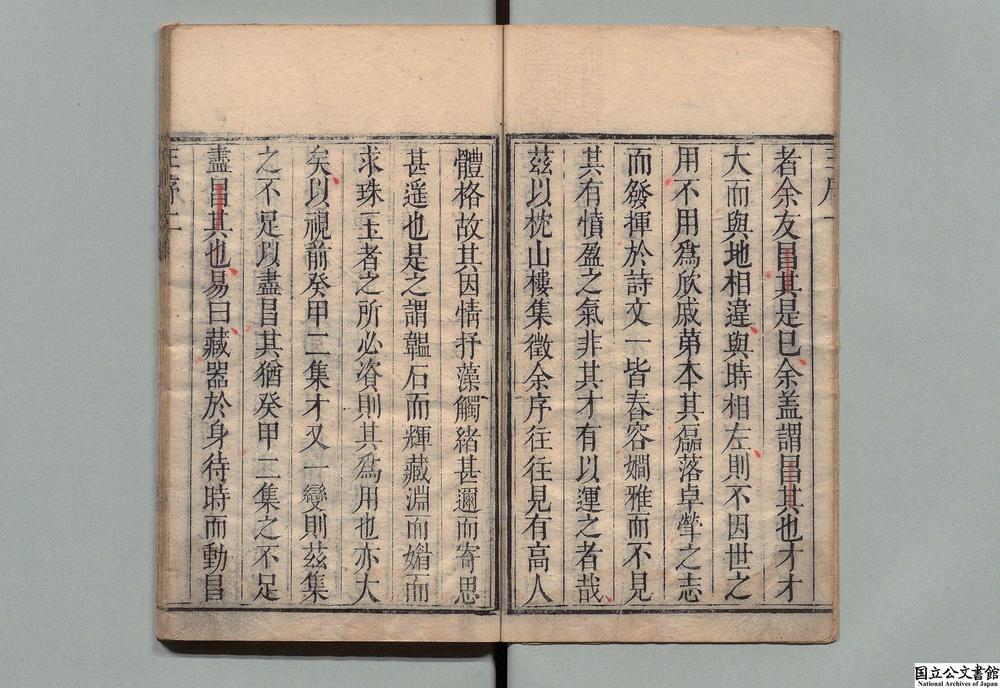 者余友昌其是已余盖謂昌其也才才
大而與地相違與時相左則不因世之
用不用爲欣戚苐本其磊落卓犖之志
而發揮於詩文一皆舂容嫺雅而不見
其有憤盈之氣非其才有以運之者哉
茲以枕山樓集徵余序往往見有高人
體格故其因情抒藻觸緒甚邇而寄思
甚遥也是之謂韞石而輝藏淵而媚而
求珠玉者之所必資則其爲用也亦大
矣以視前癸甲二集才又一變則茲集
之不足以盡昌其猶癸甲二集之不足
盡昌其也易曰藏器於身待時而動昌
王序二
国立公文書館
National Archives of Japan